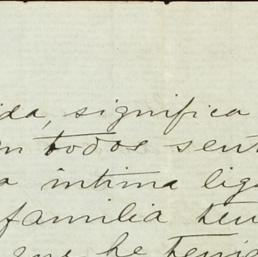 ida, significa
n todos sent
a íntima liga
familia ten
que he tenid